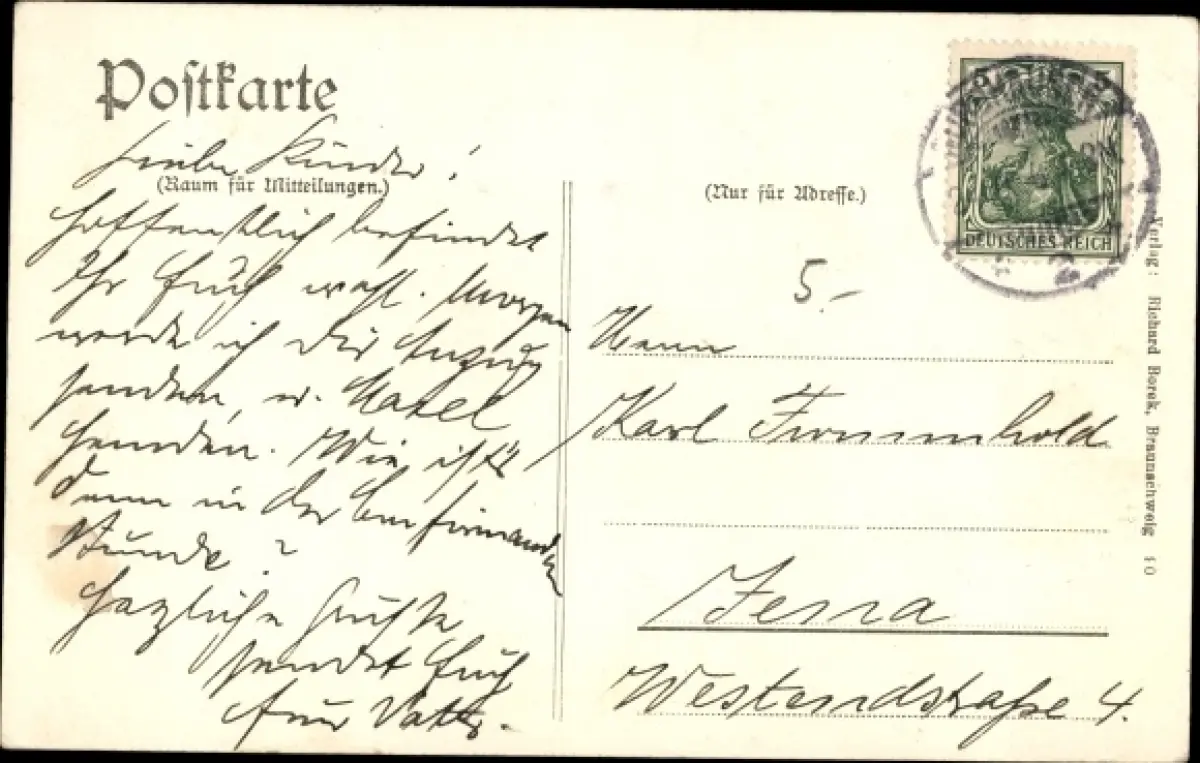 Postkarte
Liebe Kinder!
(Raum für Mitteilungen.)
Hoffentlich befindet
Ihr Euch wohl. Morgen
werde ich die Anzug
senden, u.
Hemden. Wie ist's
denn in der Confirmanden
Stunde?
Herzliche Grüße
sendet Euch
Euer Vater.
(Nur für Adresse.)
5
DEUTSCHES REICH
5.-
Herrn
Karl Frommhold
Jena
Westendstraße 4.
Verlag: Richard Borek, Braunschweig 40